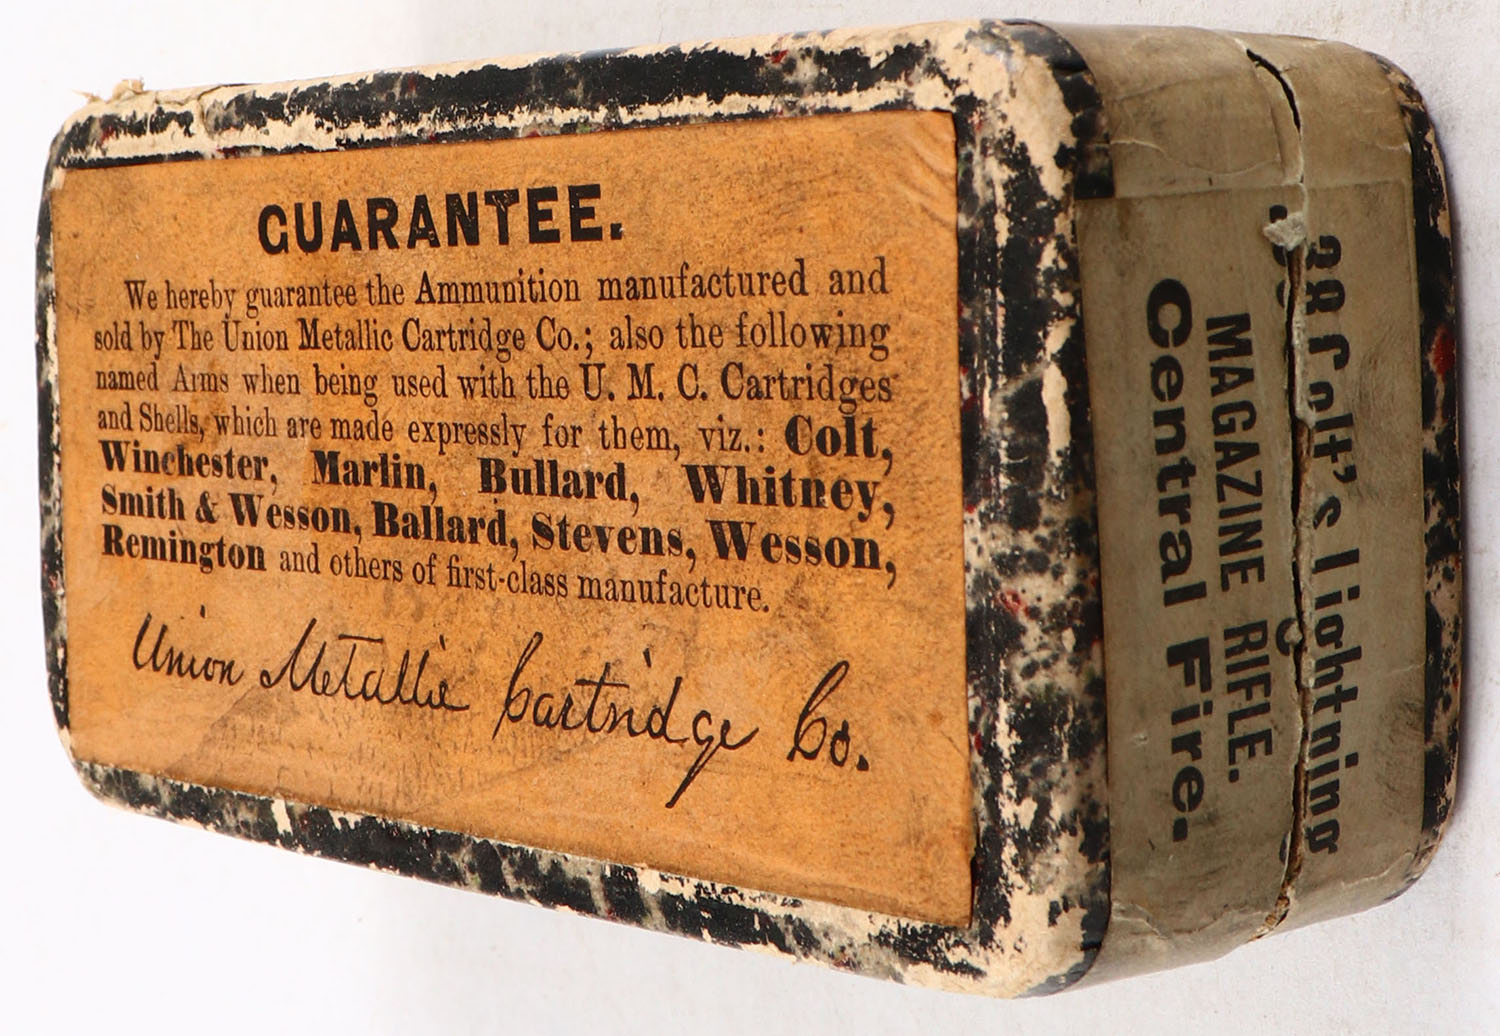 GUARANTEE.
We hereby guarantee the Ammunition manufactured and
sold by The Union Metallic Cartridge Co.; also the following
named Arms when being used with the U. M. C. Cartridges
and Shells, which are made expressly for them, viz.: Colt,
Winchester, Marlin, Bullard, Whitney,
Smith & Wesson, Ballard, Stevens, Wesson,
Remington and others of first-class manufacture.
Union Metallic Cartridge Co.
38 Colt's Lightning
MAGAZINE RIFLE.
Central Fire.